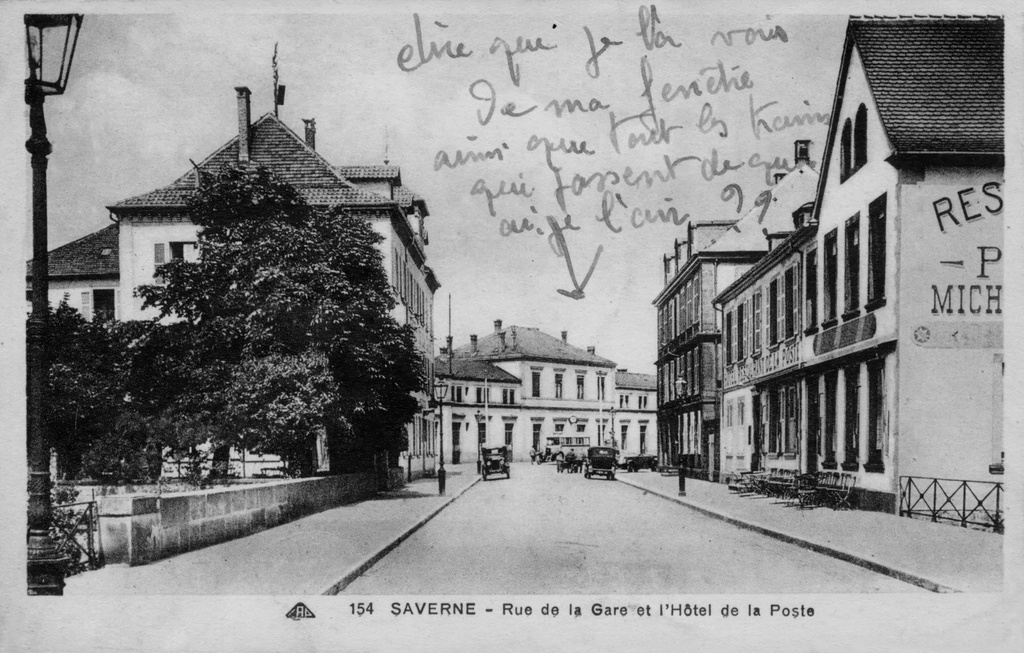 dire que je la vois
De ma fenêtre
ainsi que tout les trains
qui passent de quoi
ai je l'air ??
RES
- P
MICH
DE LA POSTE
154 SAVERNE - Rue de la Gare et l'Hôtel de la Poste